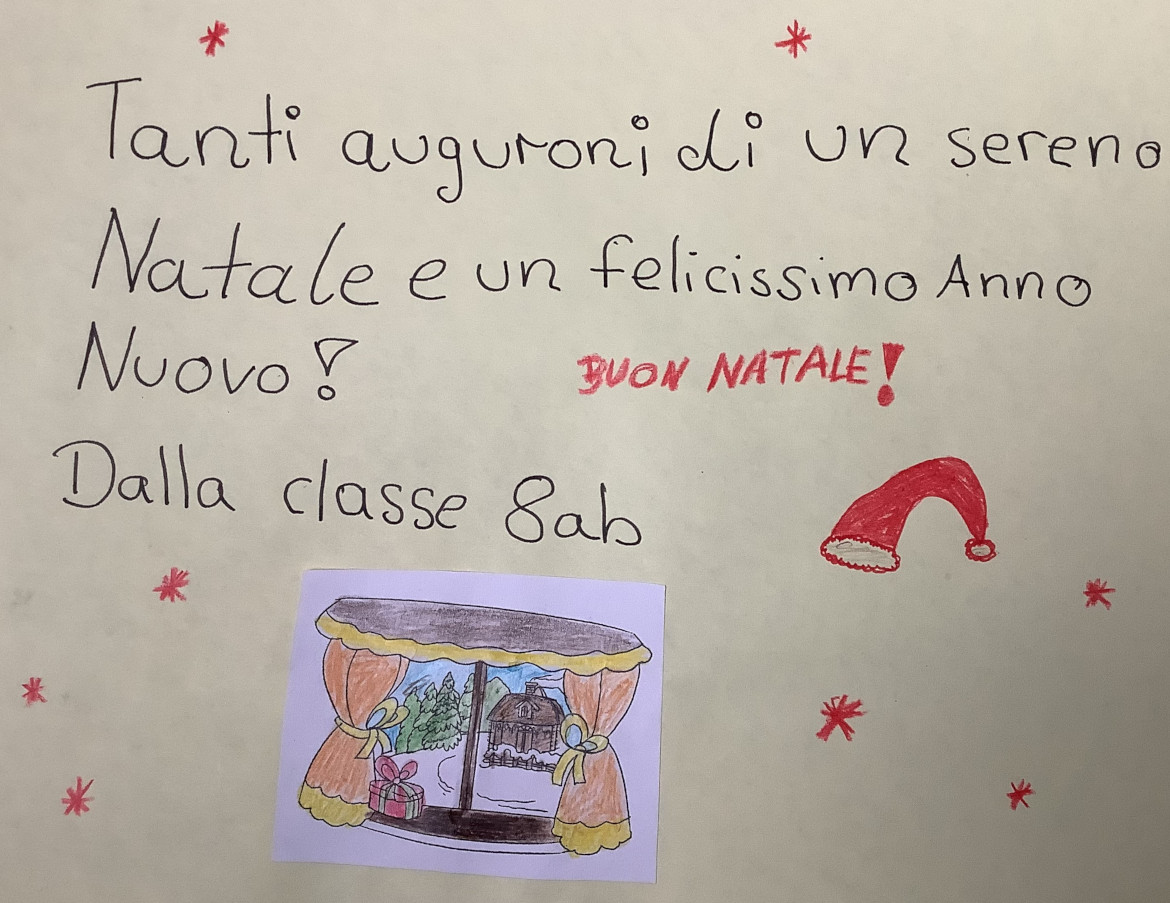 Tanti auguroni di un sereno
Natale e un felicissimo Anno
Nuovo!
BUON NATALE!
Dalla classe 8ab